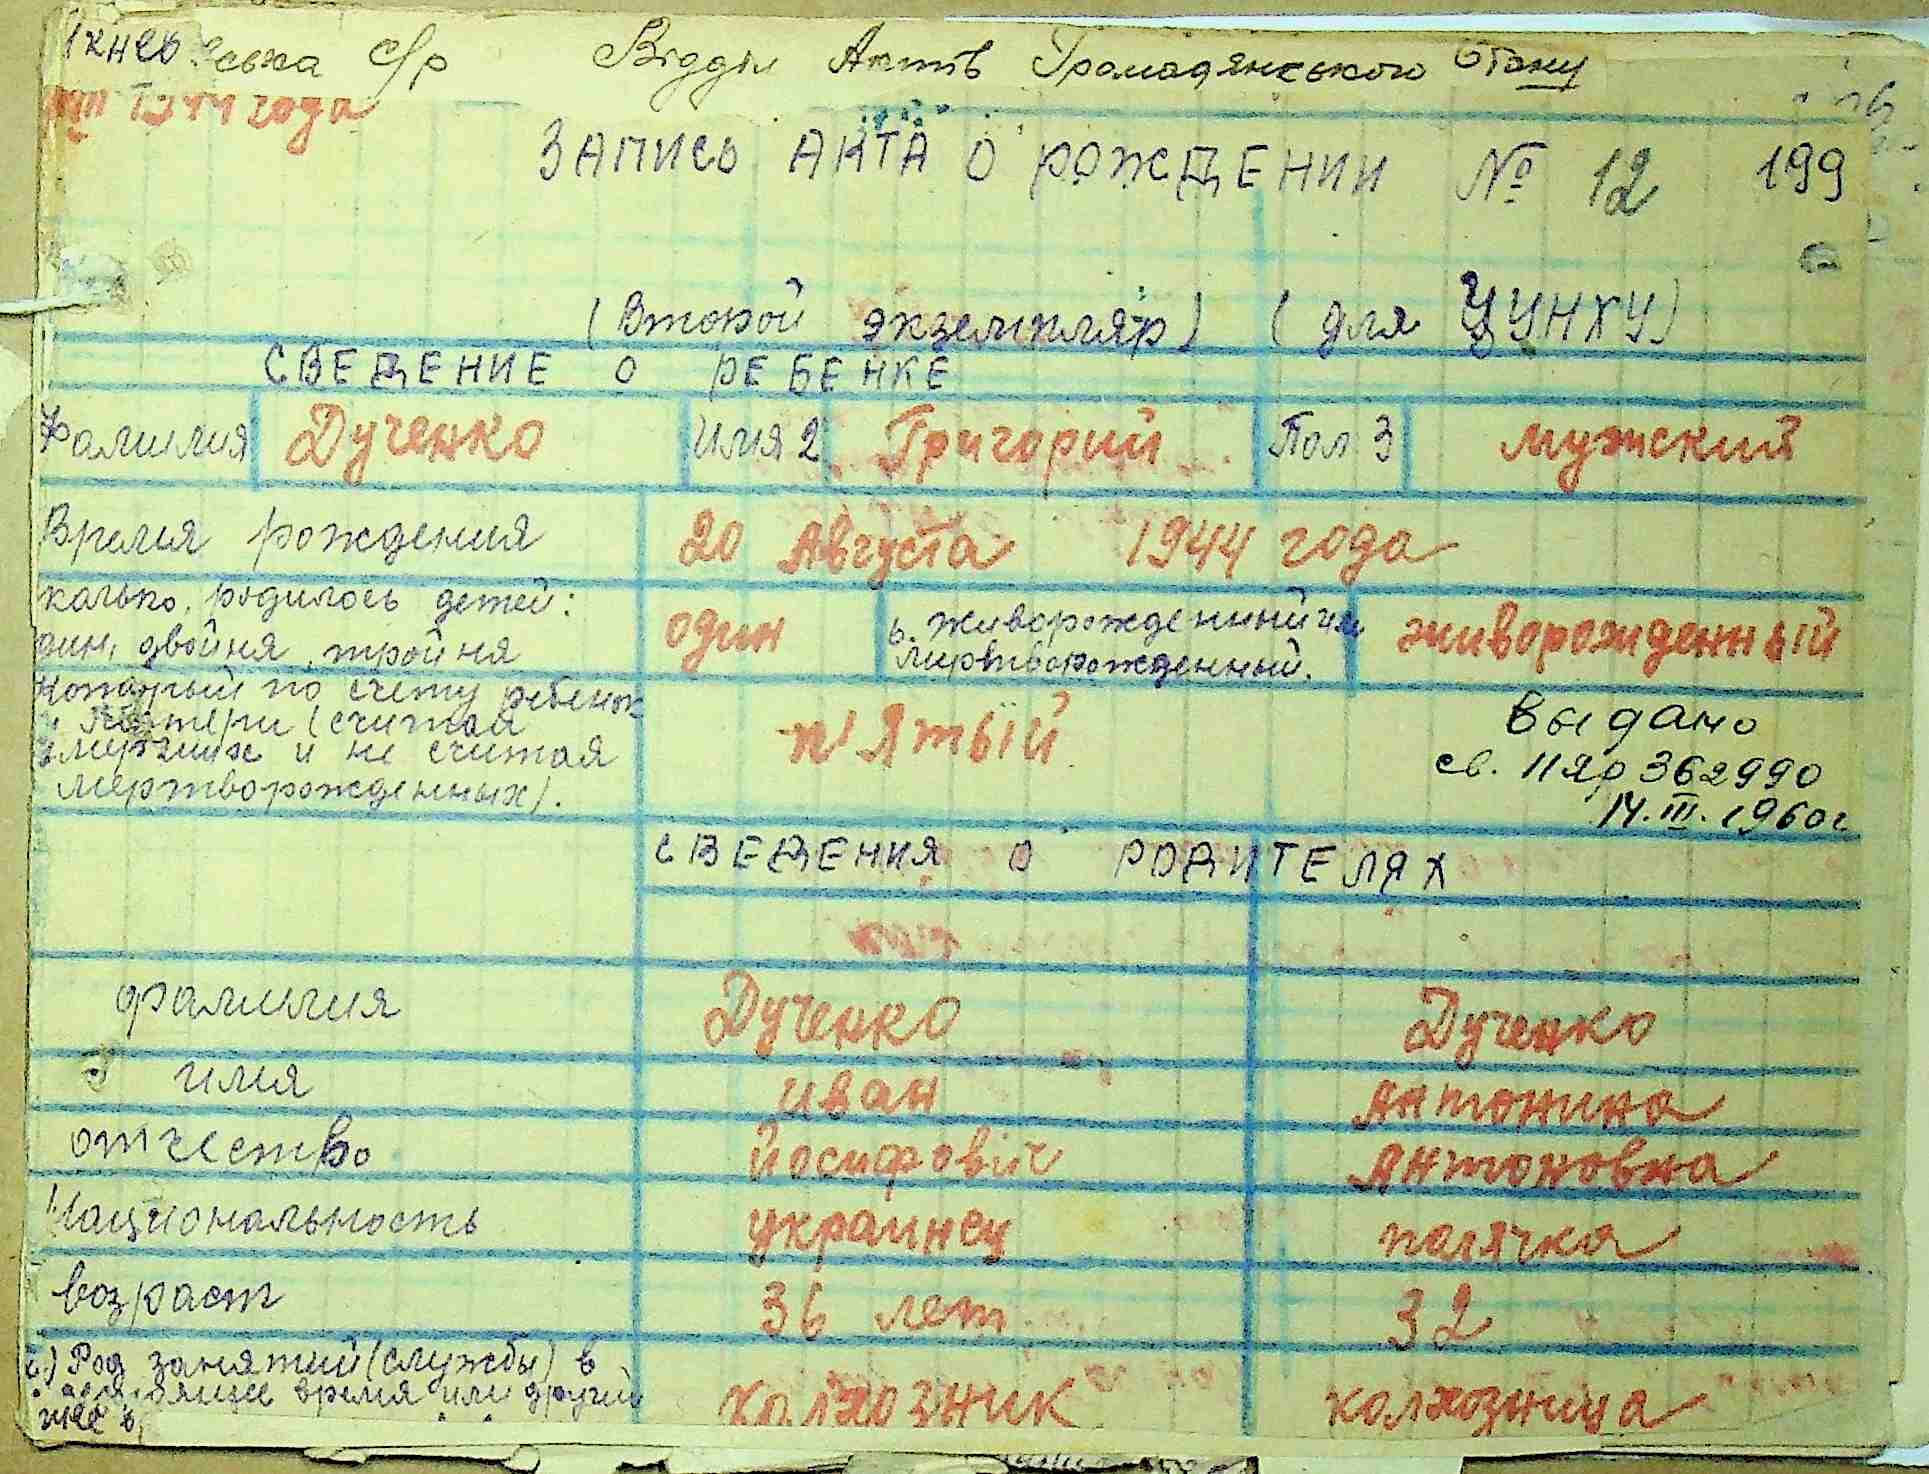 с/р Відділ Актів Громадянського Стану
1944 года
ЗАПИСЬ АКТА О РОЖДЕНИИ № 12 199
(Второй экземпляр) (для ЦУНХУ)
СВЕДЕНИЕ О РЕБЕНКЕ
Фамилия Дученко Имя 2 Григорий Пол 3 мужский
Время рождения 20 Августа 1944 года
колько родилось детей: один ь. живорожденный или живорожденный
двойня, тройня мертворожденный.
который по счету ребенок п'ятый Выдано
матери (считая св. ІІ ЯР 362990
умерших и не считая 14.III.1960г
мертворожденных).
СВЕДЕНИЯ О РОДИТЕЛЯХ
фамилия Дученко Дученко
имя иван Антонина
отчество йосифовіч Антоновна
Национальность украинец полячка
возраст 36 лет 32
Род занятий (службы) в колхозник колхозница
время или другий